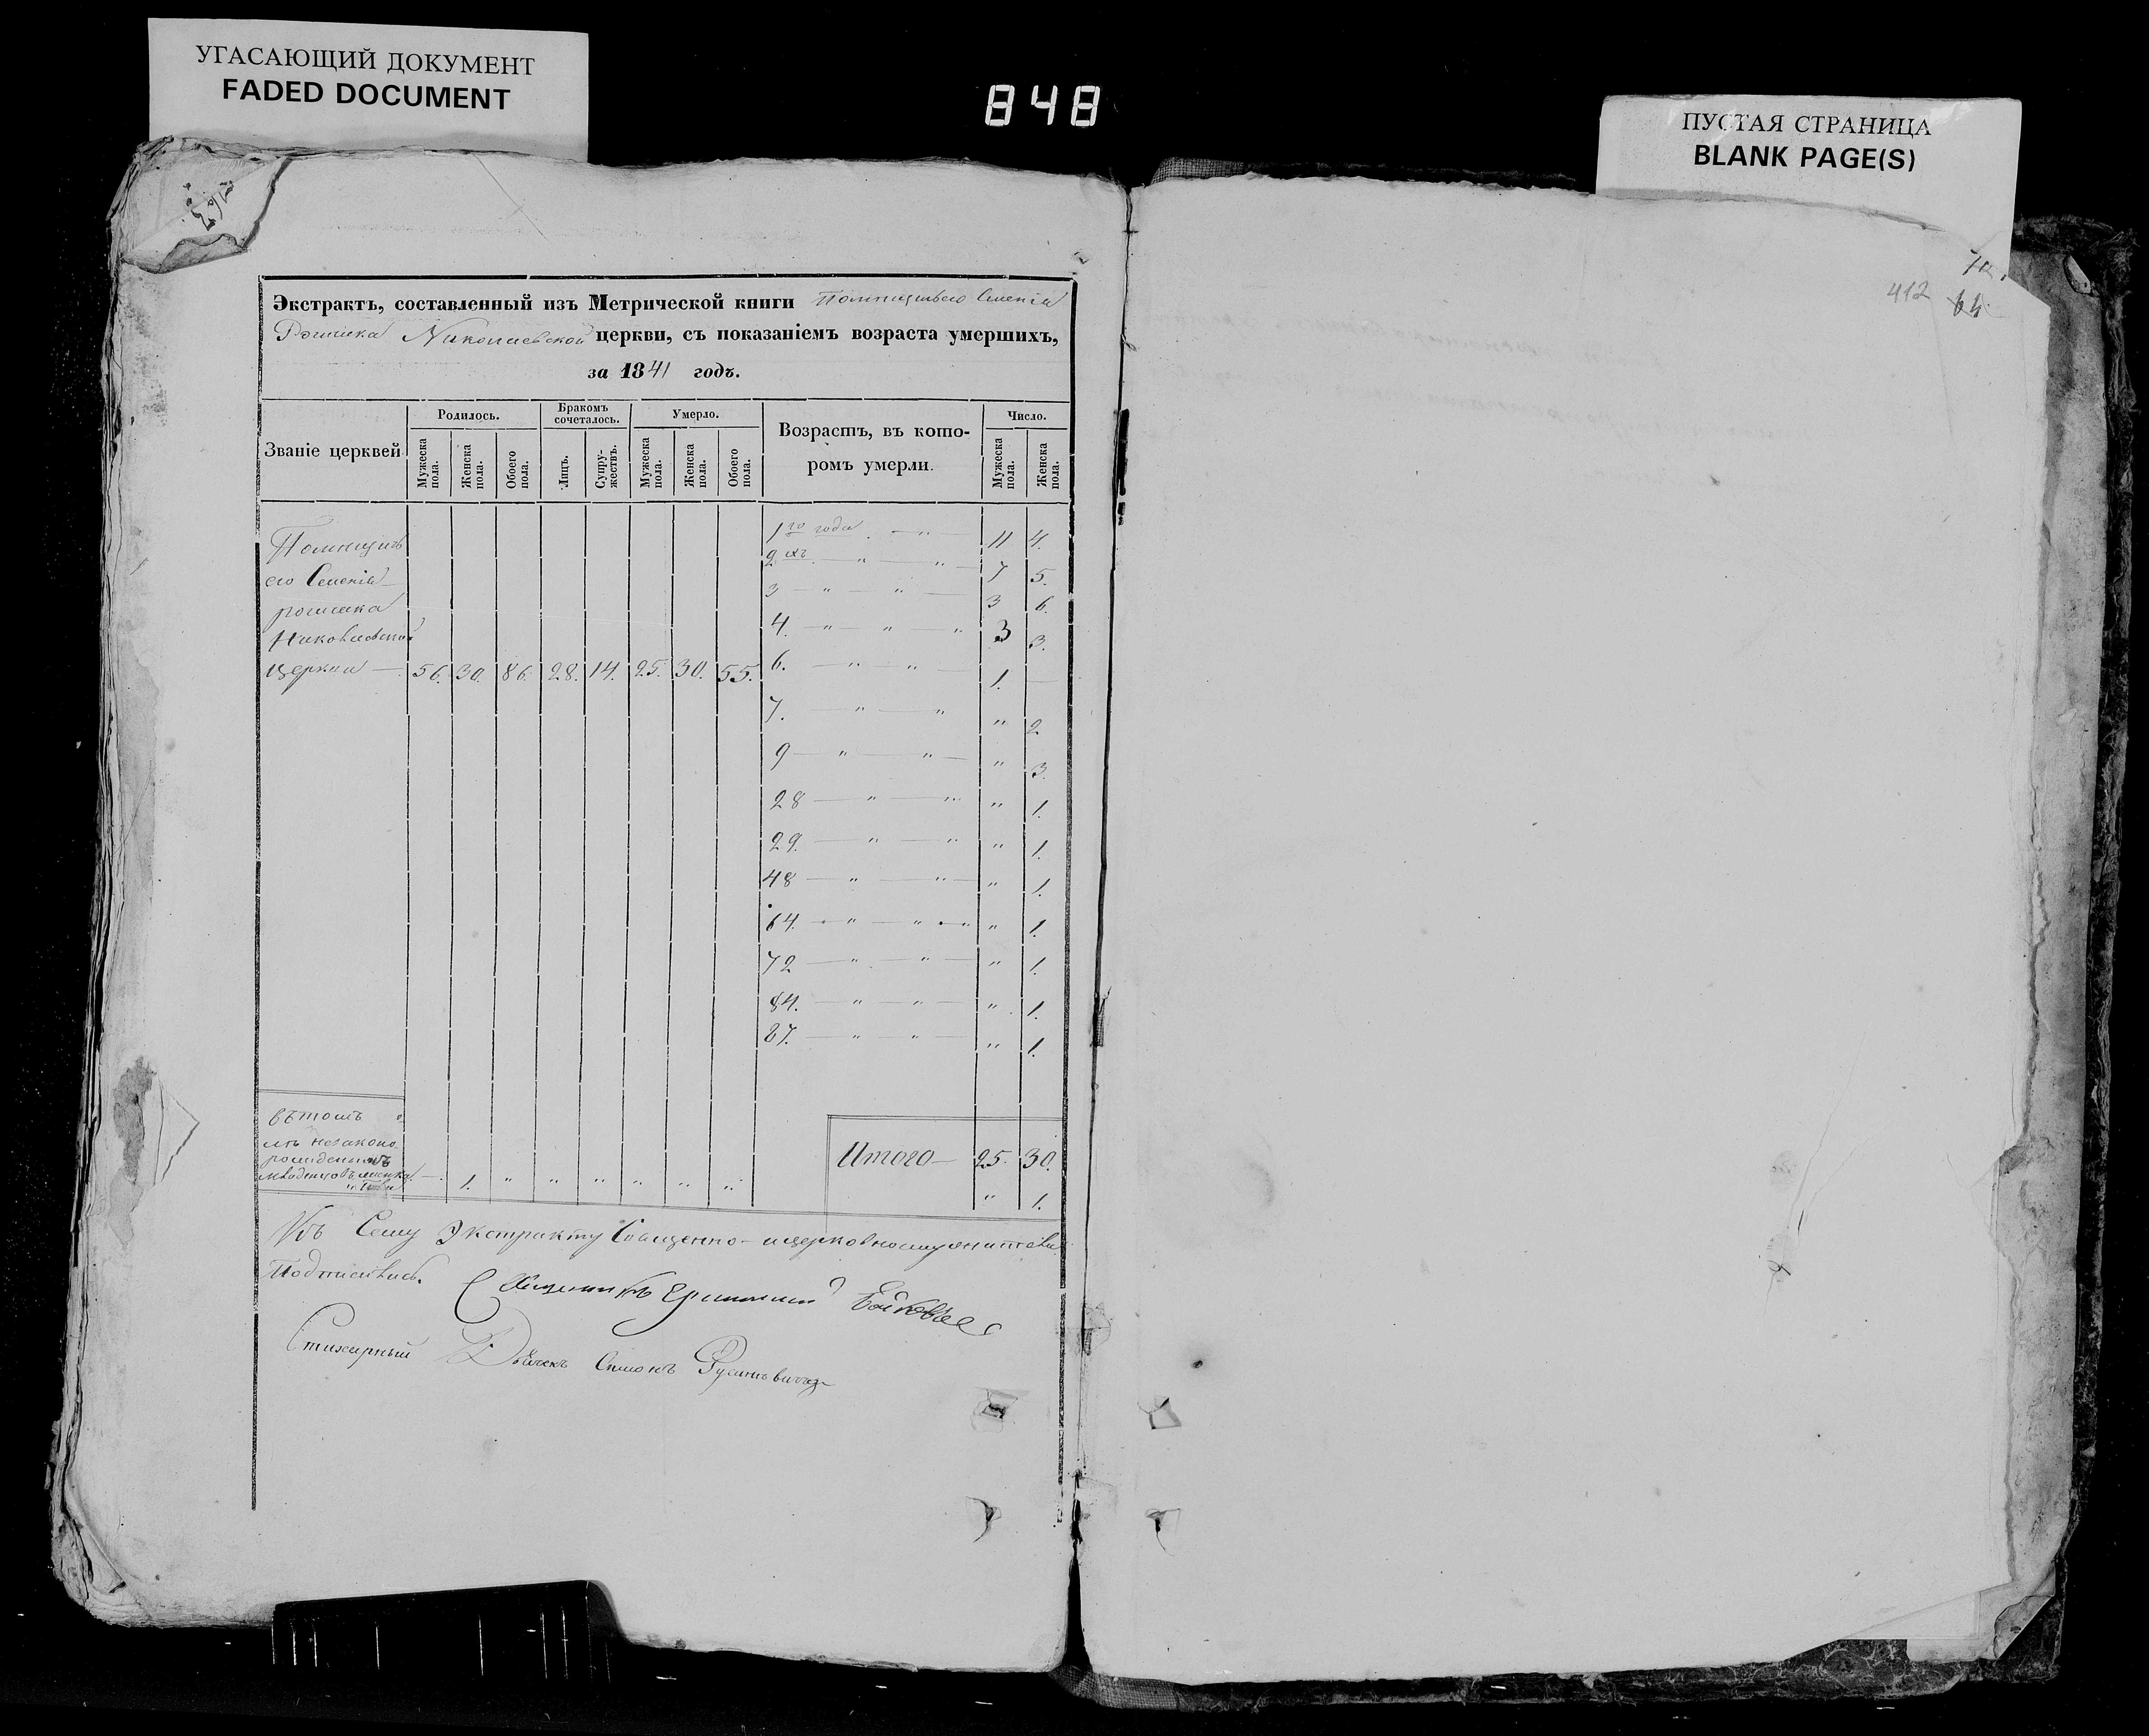 УГАСАЮЩИЙ ДОКУМЕНТ
FADED DOCUMENT
848
ПУСТАЯ СТРАНИЦА
BLANK PAGE(S)
412 64
Экстрактъ, составленный изъ Метрической книги
Николаевской церкви, съ показаніемъ возраста умершихъ,
за 1841 годъ.
Званіе церквей
Родилось.
Мужеска пола.
Женска пола.
Обоего пола.
Бракомъ сочеталось.
Лицъ.
Супружествъ.
Умерло.
Мужеска пола.
Женска пола.
Обоего пола.
Возрастъ, въ которомъ умерли.
Число.
Мужеска пола.
Женска пола.
Николаевской
церкви — 56. 30. 86. 28. 14. 25. 30. 55.
1го года — " — 11 4.
2хъ — " — " — 7 5.
3 — " — " — 3 6.
4. — " — " 3 3.
6. — " — " — 1. —
7. — " — " " 2
9 — " — " — " 3.
28 — " — " " 1.
29. — " — " " 1.
48 — " — " — " 1.
64. — " — " — " " 1.
72 — " — " — " 1.
84. — " — " — " 1.
87. — " — " — " 1.
въ томъ
незаконо
рожденныхъ
младенцовъ — 1. " " " " " "
Итого — 25. 30.
" 1.
Къ Сему Экстракту Священно-
Подписались.
Священникъ
Стихарный Дьячекъ Симонъ